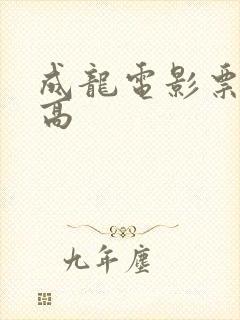 成龍電影票
高
九年塵